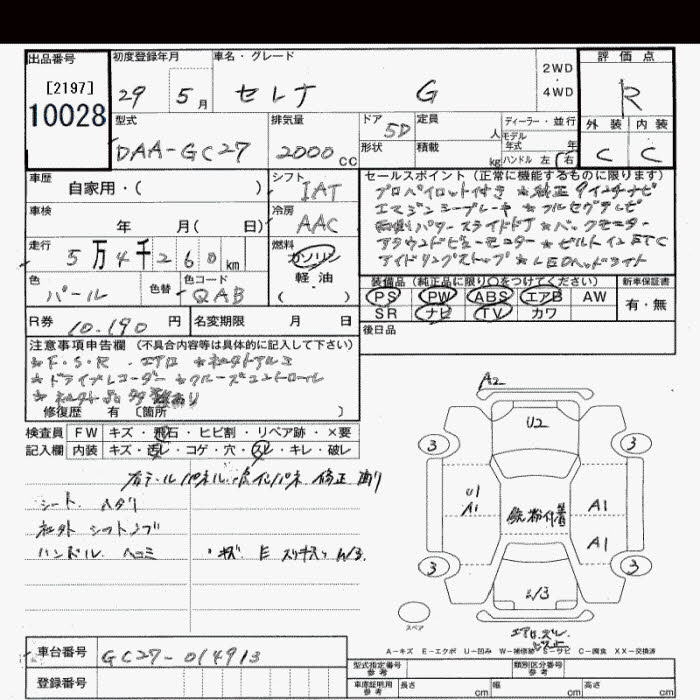 出品番号
[2197]
10028
初度登録年月
29 5月
車名・グレード
セレナ G
2WD
・
4WD
評価点
R
外装 内装
C C
型式
DAA-GC27
排気量
2000cc
ドア
5D
定員
人
形状
積載
kg
ディーラー・並行
モデル年式 年
ハンドル 左・右
車歴
自家用・( )
シフト
IAT
車検
年 月( 日)
冷房
AAC
走行
5万4千260km
燃料
ガソリン
軽・油
( )
色
パール
色替
色コード
QAB
R券
10.190円
名変期限 月 日
セールスポイント(正常に機能するものに限ります)
プロパイロット付き ☆純正9インチナビ
エマージンシーブレーキ ☆フルセグテレビ
両側パワースライドドア ☆バックモニター
アラウンドビューモニター ☆ビルトインETC
アイドリングストップ ☆LEDヘッドライト
装備品(純正品に限り○をつけてください)
PS PW ABS エアB AW
SR ナビ TV カワ
新車保証書
有・無
後日品
注意事項申告欄(不具合内容等は具体的に記入して下さい)
☆F.S.R.エアロ ☆社外アルミ
☆ドライブレコーダー ☆クルーズコントロール
☆社外品多数あり
修復歴 有〔箇所 〕
検査員
記入欄
FW キズ・飛石・ヒビ割・リペア跡・×要
内装 キズ・汚レ・コゲ・穴・スレ・キレ・破レ
修正 有り
シート ヘタリ
社外 シフトノブ
ハンドル ヘコミ
A2
U2
3
3
U1
A1
鉄粉付着
A1
A1
3
3
W3
スペア
A-キズ E-エクボ U-凹み W-補修跡 S-サビ C-腐食 XX-交換済
車台番号
GC27-014913
登録番号
型式指定番号
参考
類別区分番号
参考
車庫証明用
参考
長さ cm
幅 cm
高さ cm